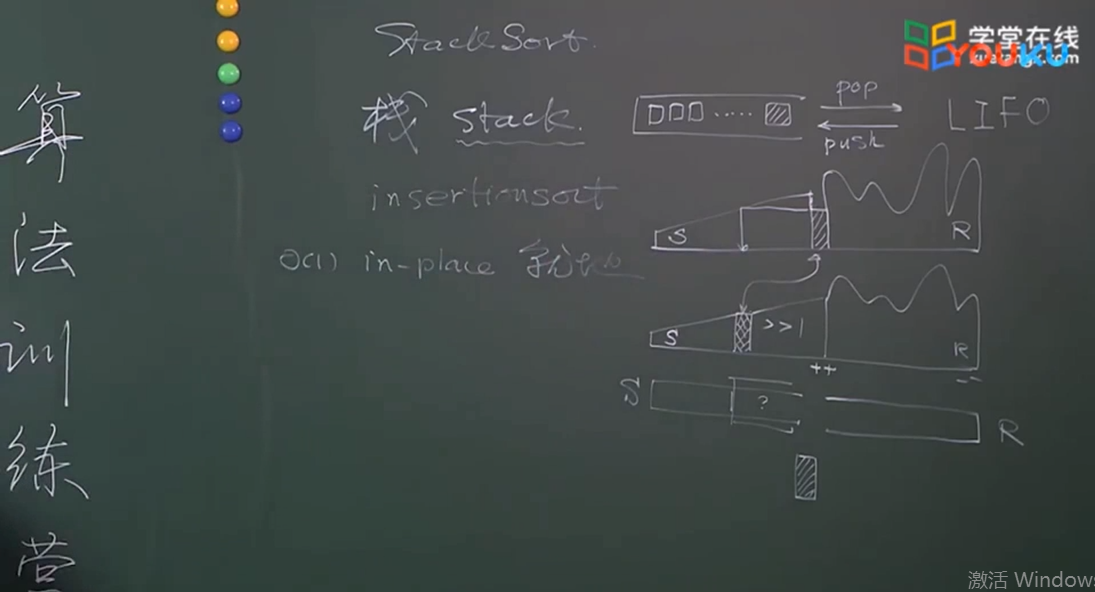 算法训练营
StackSort.
栈 stack.
pop
push
LIFO
insertionsort
O(1) in-place
S
R
S
>>1
R
++
--
S
?
R
学堂在线
xuetangx.com
YOUKU
激活 Windows